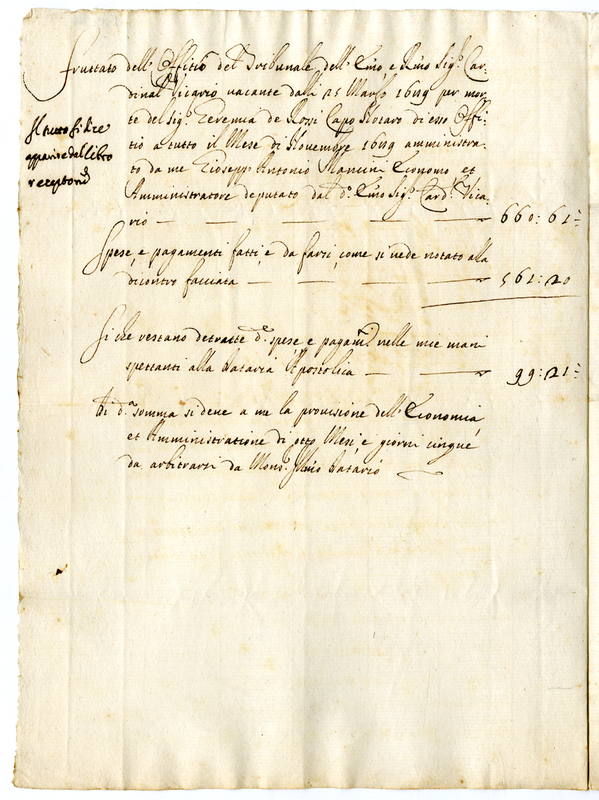 Fruttato dell'Offitio del Tribunale dell'Em̃o e Rm̃o Sig.r Car-
dinal Vicario vacante dalli 25 Marzo 1689 per mor-
te del Sig.r Geremia de Rossi Capo Notaro di esso Offi-
tio a tutto il Mese di Novembre 1689 amministra-
to da me Gioseppe Antonio Mancini Economo, et
Amministratore deputato dal d.o Em̃o Sig.r Card.l Vica-
rio — — — — 660: 61
Il tutto si dice
apparire dal libro
Spese, e pagamenti fatti, e da farsi, come si vede notato alla
dicontro facciata — — — 561: 20
Si che restano detratte d.e spese, e pagam.ti nelle mie mani
spettanti alla Dataria Apostolica — — 99: 21
Di d.a somma si deve a me la provisione dell'Economia
et Amministratione di otto Mesi e giorni cinque
da arbitrarsi da Mons.r Ill̃mo Datario